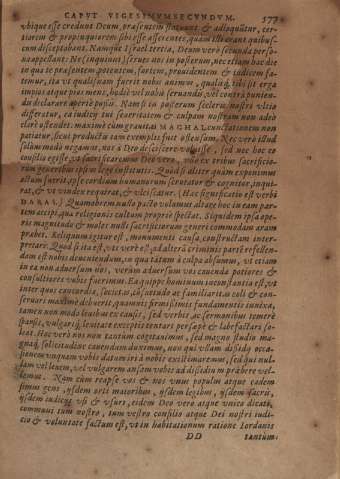 CAPUT VIGESIMUM SECUNDUM. 573
vbique esse credunt Deum, præsentem statuunt & alloquuntur, cer-
tiorem & propinquiorem sibi esse asserentes, quàm isti erant quibus-
cum disceptabant. Namque Israel tertia, Deum verò secunda perso-
na appellant: Ne (inquiunt) serues nos in posterum, nec etiam hoc die
in qua te præsentem potentem, fortem, prouidentem & iudicem fa-
temur, ita ut qualis nam fuerit nobis animus, qualisq. tibi sit erga
impios atque pios mens, hodie vel nobis seruandis, vel contrà punien-
dis declarare aperiè possis. Nam si in posterum sceleris nostri vltio
differatur, ea iudicij tui seueritatem & culpam nostram non adeò
clarè ostendet: maximè cùm grauitas MAGHAL cunctationem non
patiatur, sicut producto iam exemplis fuit ostensum. Nec verò istud
solùm modò negamus, nos à Deo desciscere voluisse, sed nec hoc ex
consilio egisse, vt sacrificaremus Deo vero, iuxta ex tribus sacrificio-
rum generibus ipsius lege institutis. Quòd si aliter quàm exponimus
actum fuerit, ipse cordium humanorum scrutator & cognitor, inqui-
rat, & vt vindex requirat, & vlciscatur. (Hæc significatio est verbi
DARAS.) Quamobrem nusto pacto volumus altare hoc in eam par-
tem accipi, qua religionis cultum propriè spectat. Siquidem ipsa ope-
ris magnitudo & moles nusti sacrificiorum generi commodam aram
probet. Reliquum igitur est, monumenti causa, constructam inter-
pretari. Quòd si ita est, vt verè est, ad alterâ criminis parté respellen-
dam est nobis deueniendum, in qua tàtum à culpa absumus, vt etiam
in ea non aduersum vos, verùm aduersum vos cauenda potiores &
consultiores vobis fuerimus. Ea quippe hominum inconstantia est, vt
inter quos concordia, societas, cosuetudo ac familiaritas coli & con-
seruari maximè debuerit, quamuis firmissimis fundamentis iunixa,
tamen non modò leuibus ex causis, sed verbis, ac sermonibus temerè
sparsis, vulgariq. leuitate exceptis tentari persæpe & labefactari so-
leat. Hoc verò nos non tantùm cogitanimus, sed magno studio ma-
gnáq. solicitudine cauendum duximus, non qui vllam dissidij occa-
sionem vnquam vobis datum iri à nobis existimaremus, sed qui nul-
lam vel leuem, vel vulgarem ansam vobis ad dissedium præbere vel-
lemus. Nam cùm reapse vos & nos vnus populus atque eadem
simus gens, ijsdem orti maioribus, ijsdem legibus, ijsdem sacris,
ijsdem iudicijs vsi & vsuri, eidem Deo vero atque vnico dicati,
communi tum nostro, tum vestro consilio atque Dei nostri iudi-
cio & voluntate factum est, vt in habitationum ratione Iordanis
DD tantum